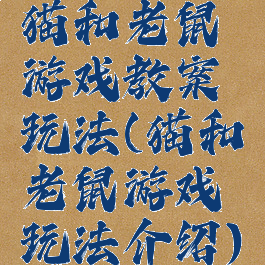 猫和老鼠
游戏教案
玩法(猫和
老鼠游戏
玩法介绍)